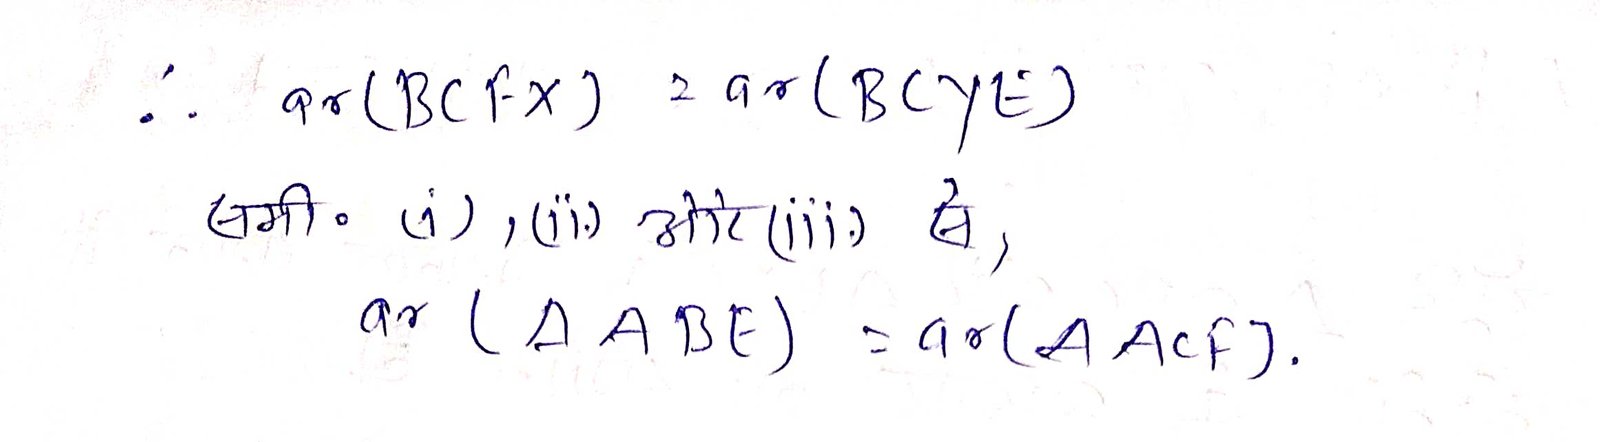 ∴ ar(BCFX) = ar(BCYE)
समी० (i), (ii) और (iii) से,
ar (Δ ABE) = ar(Δ ACF).